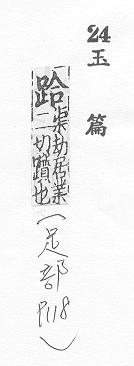 24
玉篇
跲
渠劫居業
二切躓也
(足部 P118)